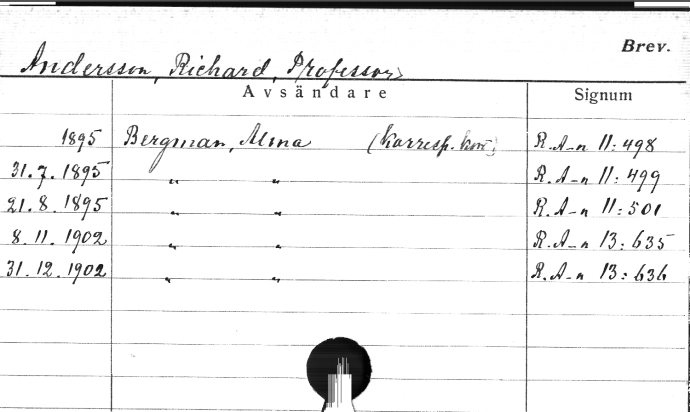 Brev.
Andersson, Richard, Professor
Avsändare Signum
1895 Bergman, Alma (Korresp. kort) R. A-n 11:498
31.7.1895 " " R. A-n 11:499
21.8.1895 " " R. A-n 11:501
8.11.1902 " " R. A-n 13:635
31.12.1902 " " R. A-n 13:636